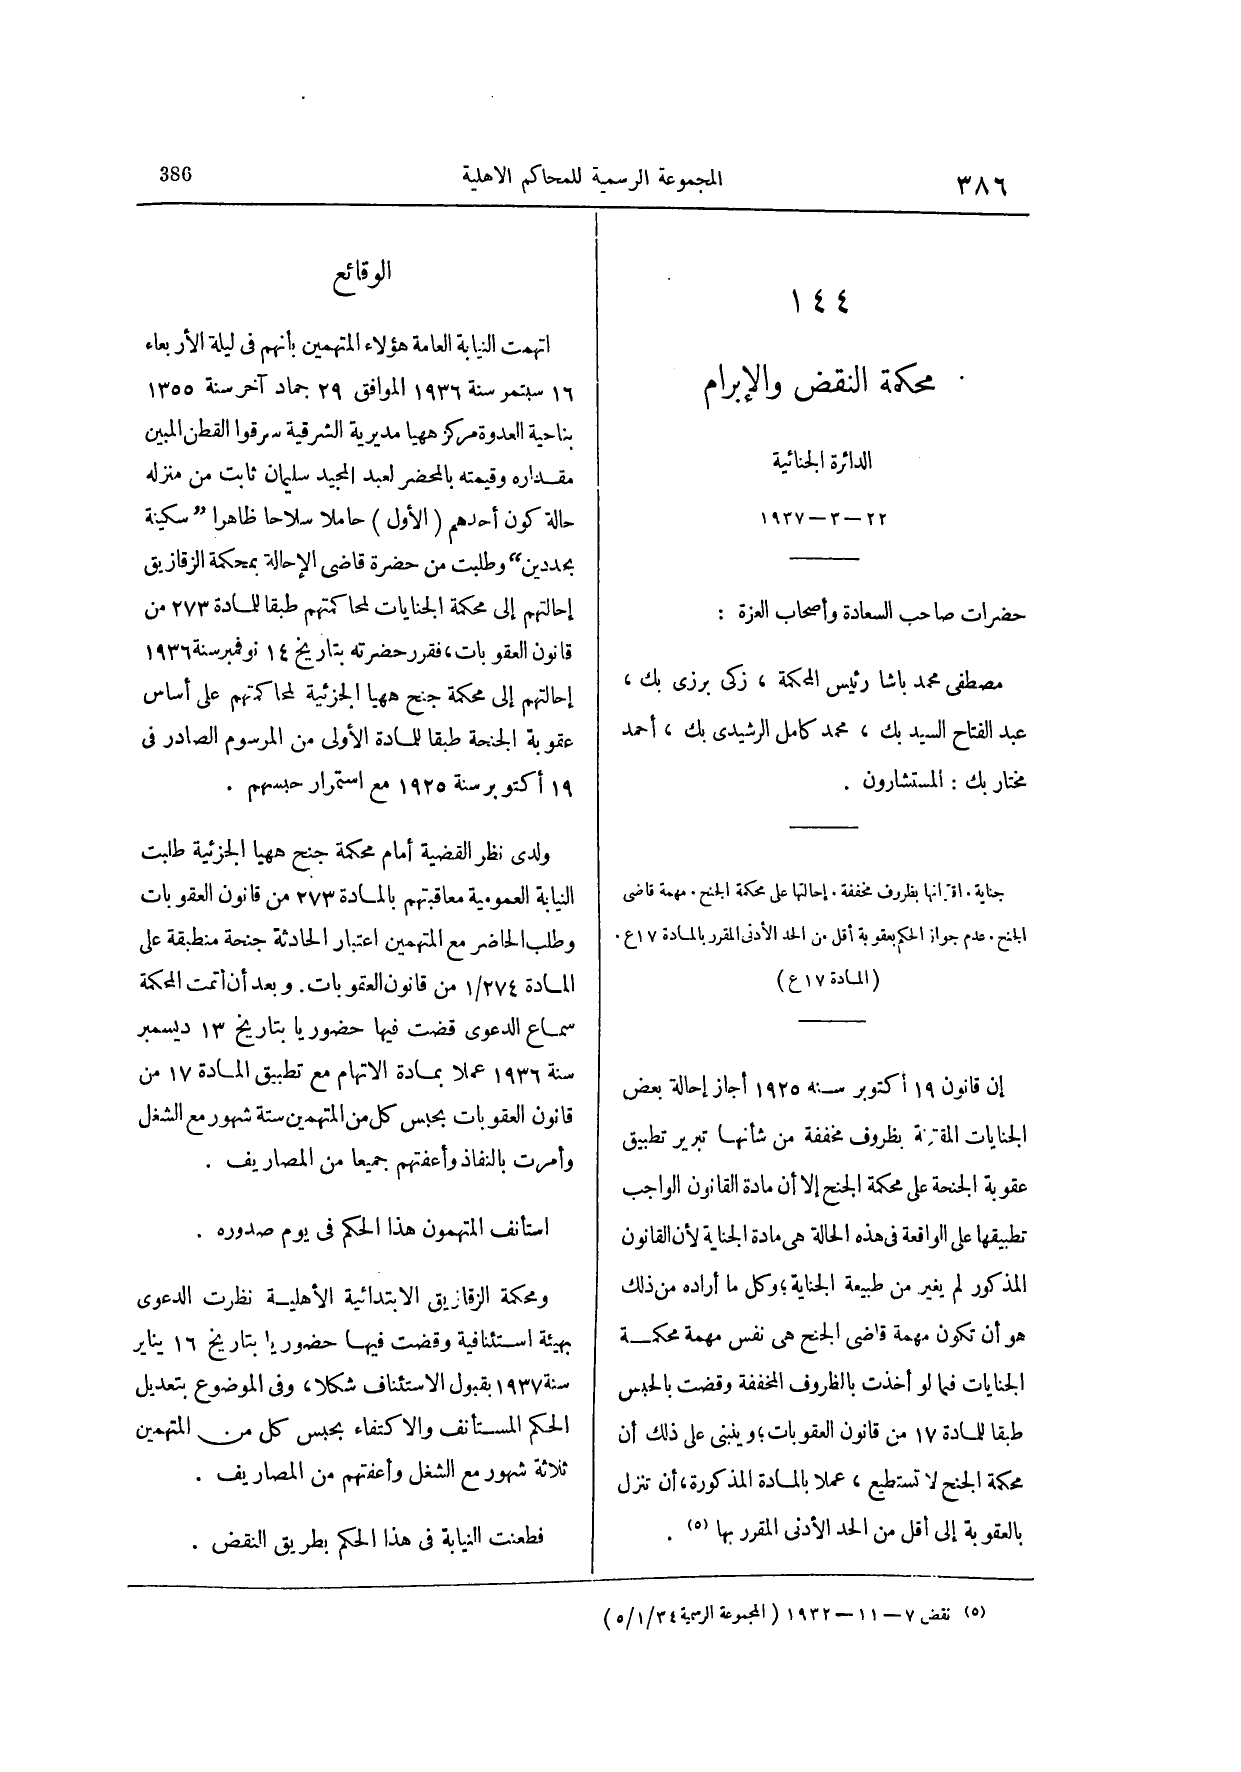 ٣٨٦
المجموعة الرسمية للمحاكم الاهلية
386
١٤٤
محكمة النقض والإبرام
الدائرة الجنائية
٢٢ – ٣ – ١٩٣٧
حضرات صاحب السعادة وأصحاب العزة :
مصطفى محمد باشا رئيس المحكمة ، زكى برزى بك ،
عبد الفتاح السيد بك ، محمد كامل الرشيدى بك ، أحمد
مختار بك : المستشارون .
جناية . اقترانها بظروف مخففة . إحالتها على محكمة الجنح . مهمة قاضى
الجنح . عدم جواز الحكم بعقوبة أقل من الحد الأدنى المقرر بالمادة ١٧ع .
(المادة ١٧ع)
إن قانون ١٩ أكتوبر سنة ١٩٢٥ أجاز إحالة بعض
الجنايات المقترنة بظروف مخففة من شأنها تبرير تطبيق
عقوبة الجنحة على محكمة الجنح إلا أن مادة القانون الواجب
تطبيقها على الواقعة فى هذه الحالة هى مادة الجناية لأن القانون
المذكور لم يغير من طبيعة الجناية ؛ وكل ما أراده من ذلك
هو أن تكون مهمة قاضى الجنح هى نفس مهمة محكمة
الجنايات فيما لو أخذت بالظروف المخففة وقضت بالحبس
طبقا للمادة ١٧ من قانون العقوبات ؛ وينبنى على ذلك أن
محكمة الجنح لا تستطيع ، عملا بالمادة المذكورة ، أن تنزل
بالعقوبة إلى أقل من الحد الأدنى المقرر بها (٥) .
الوقائع
اتهمت النيابة العامة هؤلاء المتهمين بأنهم فى ليلة الأربعاء
١٦ سبتمبر سنة ١٩٣٦ الموافق ٢٩ جماد آخر سنة ١٣٥٥
بناحية العدوة مركز ههيا مديرية الشرقية سرقوا القطن المبين
مقداره وقيمته بالمحضر لعبد المجيد سليمان ثابت من منزله
حالة كون أحدهم (الأول) حاملا سلاحا ظاهرا ”سكينة
بحددين“ وطلبت من حضرة قاضى الإحالة بمحكمة الزقازيق
إحالتهم إلى محكمة الجنايات لمحاكمتهم طبقا للمادة ٢٧٣ من
قانون العقوبات ، فقرر حضرته بتاريخ ١٤ نوفمبر سنة ١٩٣٦
إحالتهم إلى محكمة جنح ههيا الجزئية لمحاكمتهم على أساس
عقوبة الجنحة طبقا للمادة الأولى من المرسوم الصادر فى
١٩ أكتوبر سنة ١٩٢٥ مع استمرار حبسهم .
ولدى نظر القضية أمام محكمة جنح ههيا الجزئية طلبت
النيابة العمومية معاقبتهم بالمادة ٢٧٣ من قانون العقوبات
وطلب الحاضر مع المتهمين اعتبار الحادثة جنحة منطبقة على
المادة ١/٢٧٤ من قانون العقوبات . وبعد أن أتمت المحكمة
سماع الدعوى قضت فيها حضوريا بتاريخ ١٣ ديسمبر
سنة ١٩٣٦ عملا بمادة الاتهام مع تطبيق المادة ١٧ من
قانون العقوبات بحبس كل من المتهمين ستة شهور مع الشغل
وأمرت بالنفاذ وأعفتهم جميعا من المصاريف .
استأنف المتهمون هذا الحكم فى يوم صدوره .
ومحكمة الزقازيق الابتدائية الأهلية نظرت الدعوى
بهيئة استئنافية وقضت فيها حضوريا بتاريخ ١٦ يناير
سنة ١٩٣٧ بقبول الاستئناف شكلا ، وفى الموضوع بتعديل
الحكم المستأنف والاكتفاء بحبس كل من المتهمين
ثلاثة شهور مع الشغل وأعفتهم من المصاريف .
فطعنت النيابة فى هذا الحكم بطريق النقض .
(٥) نقض ٧ – ١١ – ١٩٣٢ (المجموعة الرسمية ٥/١/٣٤)